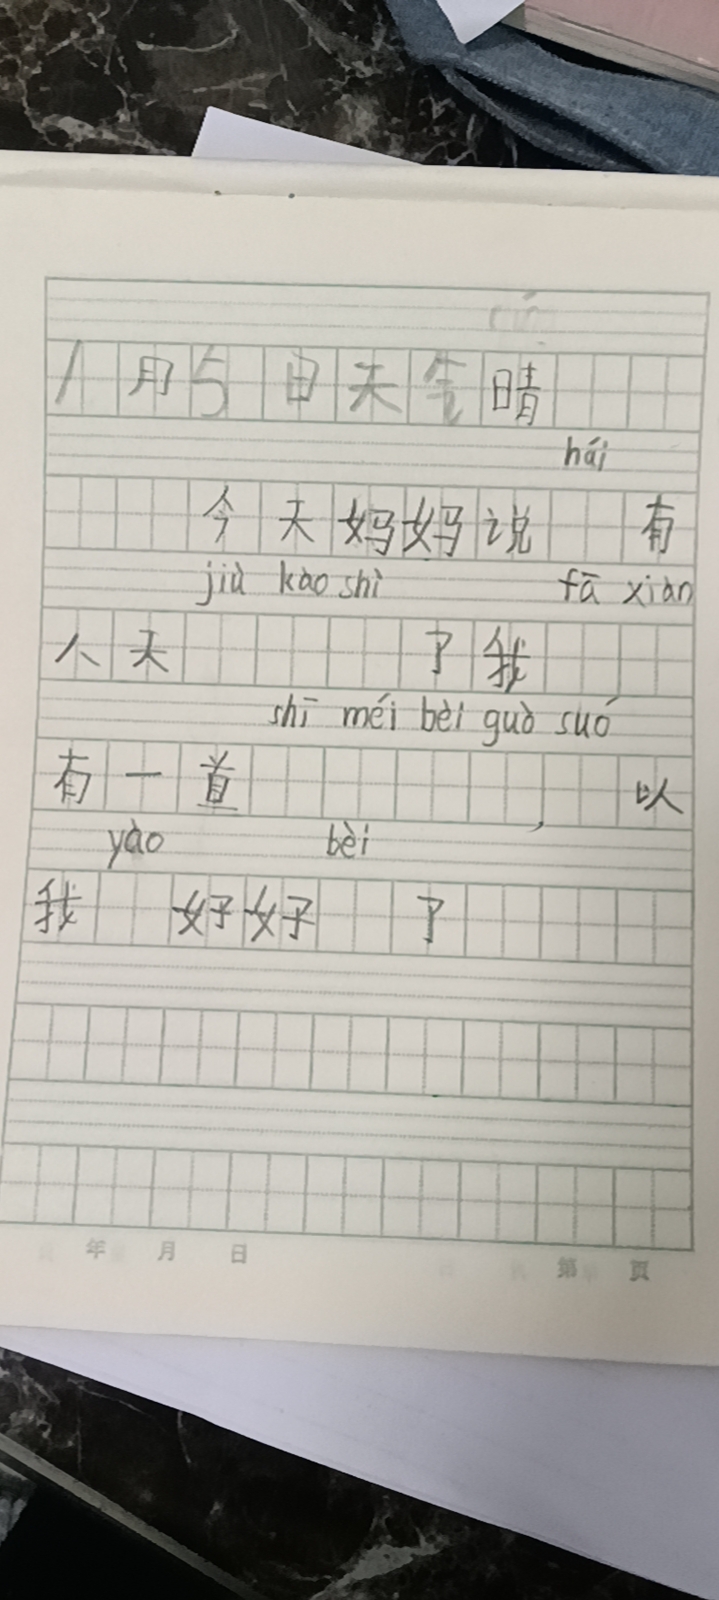 1月5日天气晴
hái
今天妈妈说 有
jiù kǎo shì fā xiàn
八天 了我
shī méi bèi guò suó
有一首 , 以
yào bèi
我 好好 了
年 月 日 第 頁